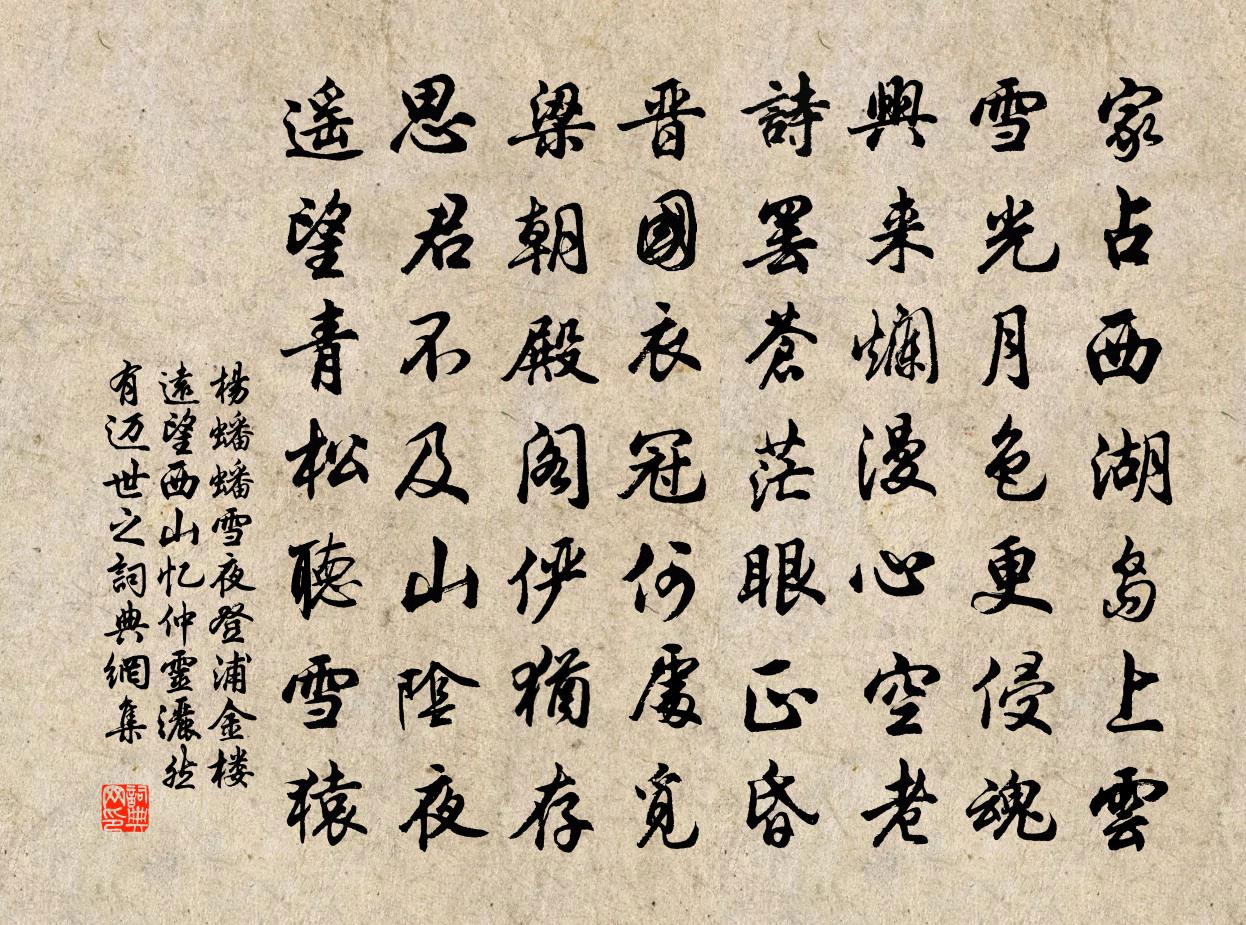 家占西湖岛上雲
雪光月色更侵魂
興来爛漫心空老
詩罢蒼茫眼正昏
晋國衣冠何處覓
梁朝殿阁俨猶存
思君不及山陰夜
遥望青松聽雪猿
楊蟠蟠雪夜登浦金楼
遠望西山忆仲靈灑然
有迈世之詞典網集
詞典网印